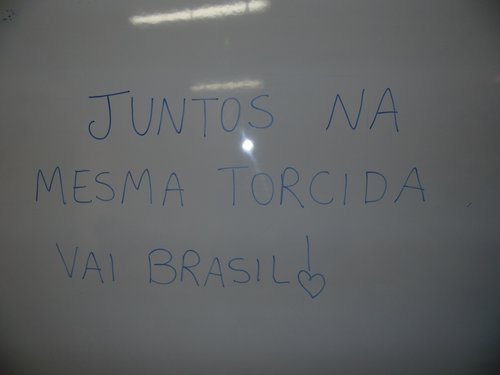 JUNTOS NA
MESMA TORCIDA.
VAI BRASIL!